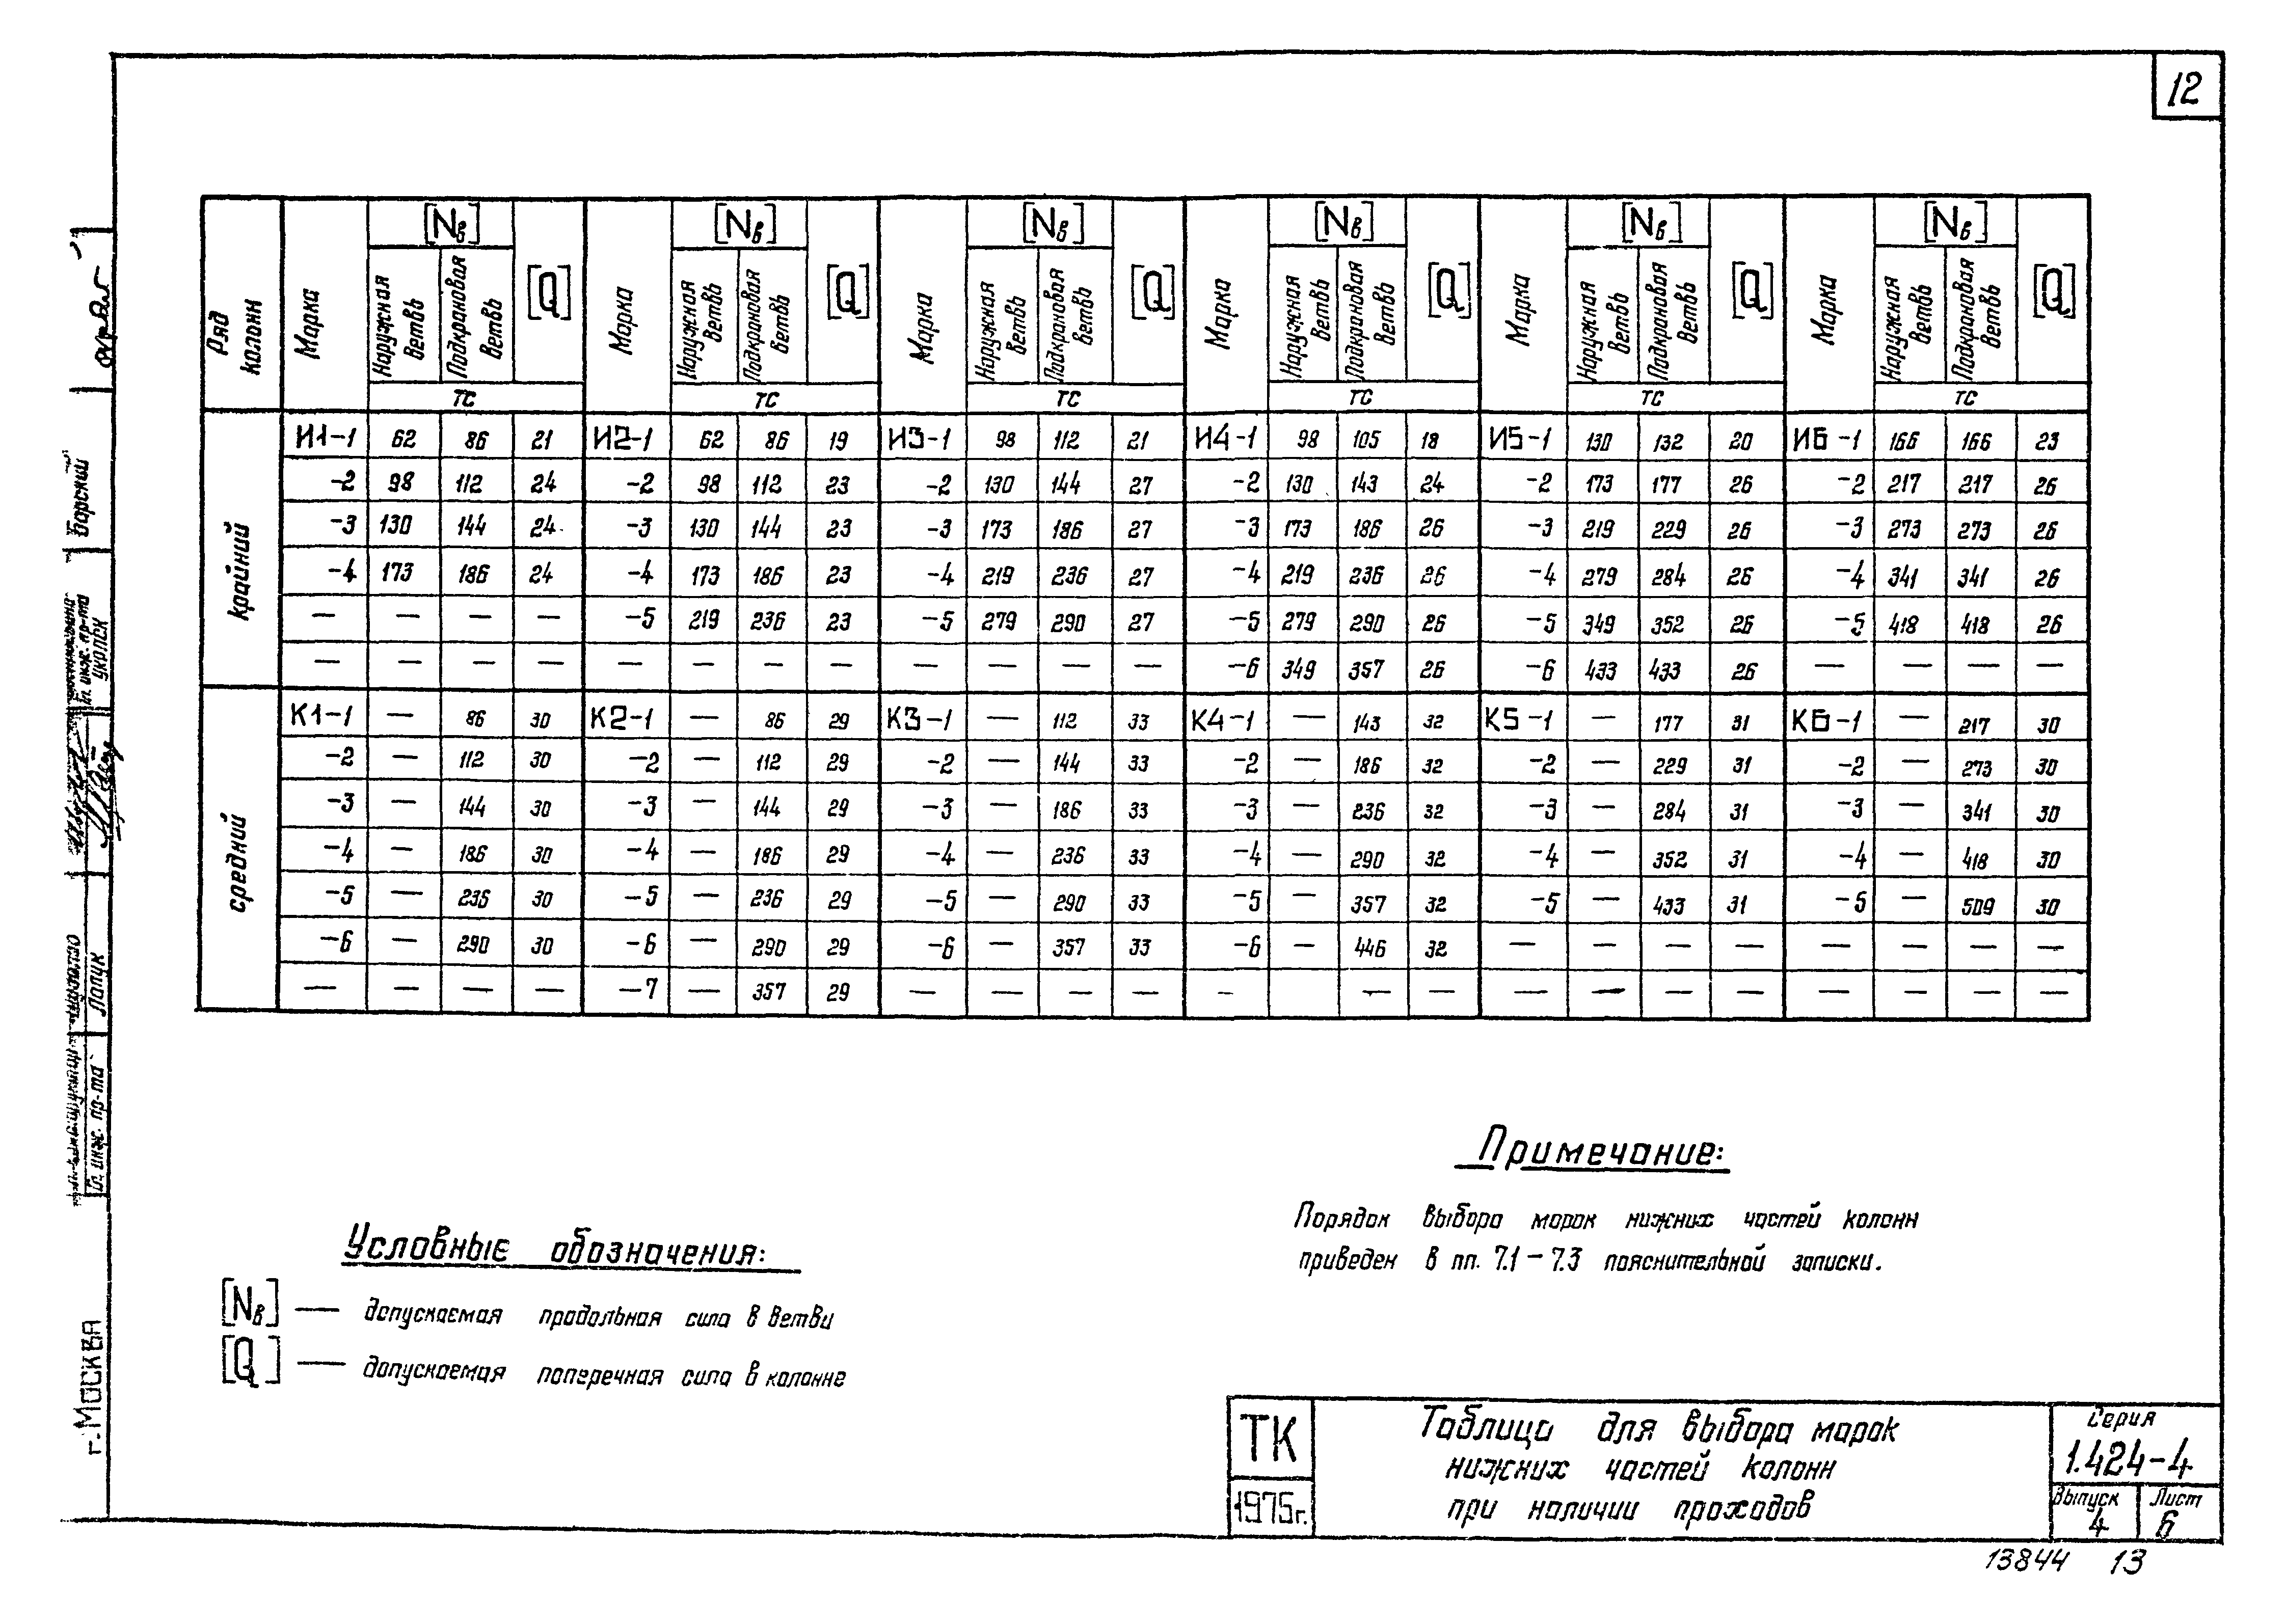 12
Ряд колонн | Марка | [Nв] | [Q] | Марка | [Nв] | [Q] | Марка | [Nв] | [Q] | Марка | [Nв] | [Q] | Марка | [Nв] | [Q] | Марка | [Nв] | [Q]
Наружная ветвь | Подкрановая ветвь | Наружная ветвь | Подкрановая ветвь | Наружная ветвь | Подкрановая ветвь | Наружная ветвь | Подкрановая ветвь | Наружная ветвь | Подкрановая ветвь | Наружная ветвь | Подкрановая ветвь
тс | тс | тс | тс | тс | тс
крайний
И1-1 62 86 21 И2-1 62 86 19 И3-1 98 112 21 И4-1 98 105 18 И5-1 130 132 20 И6-1 166 166 23
-2 98 112 24 -2 98 112 23 -2 130 144 27 -2 130 143 24 -2 173 177 26 -2 217 217 26
-3 130 144 24 -3 130 144 23 -3 173 186 27 -3 173 186 26 -3 219 229 26 -3 273 273 26
-4 173 186 24 -4 173 186 23 -4 219 236 27 -4 219 236 26 -4 279 284 26 -4 341 341 26
— — — — -5 219 236 23 -5 279 290 27 -5 279 290 26 -5 349 352 26 -5 418 418 26
— — — — — — — — — — — — -6 349 357 26 -6 433 433 26 — — — —
средний
К1-1 — 86 30 К2-1 — 86 29 К3-1 — 112 33 К4-1 — 143 32 К5-1 — 177 31 К6-1 — 217 30
-2 — 112 30 -2 — 112 29 -2 — 144 33 -2 — 186 32 -2 — 229 31 -2 — 273 30
-3 — 144 30 -3 — 144 29 -3 — 186 33 -3 — 236 32 -3 — 284 31 -3 — 341 30
-4 — 186 30 -4 — 186 29 -4 — 236 33 -4 — 290 32 -4 — 352 31 -4 — 418 30
-5 — 236 30 -5 — 236 29 -5 — 290 33 -5 — 357 32 -5 — 433 31 -5 — 509 30
-6 — 290 30 -6 — 290 29 -6 — 357 33 -6 — 446 32 — — — — — — — —
— — — — -7 — 357 29 — — — — — — — — — — — — — — —
Примечание:
Порядок выбора марок нижних частей колонн
приведен в пп. 7.1 – 7.3 пояснительной записки.
Условные обозначения:
[Nв] — допускаемая продольная сила в ветви
[Q] — допускаемая поперечная сила в колонне
ТК
1975г.
Таблица для выбора марок
нижних частей колонн
при наличии проходов
Серия
1.424-4
Выпуск
4
Лист
6
13844 13
Барский
Гл. инж. пр-та
УКРПСК
Лапук
Гл. инж. пр-та
г. Москва